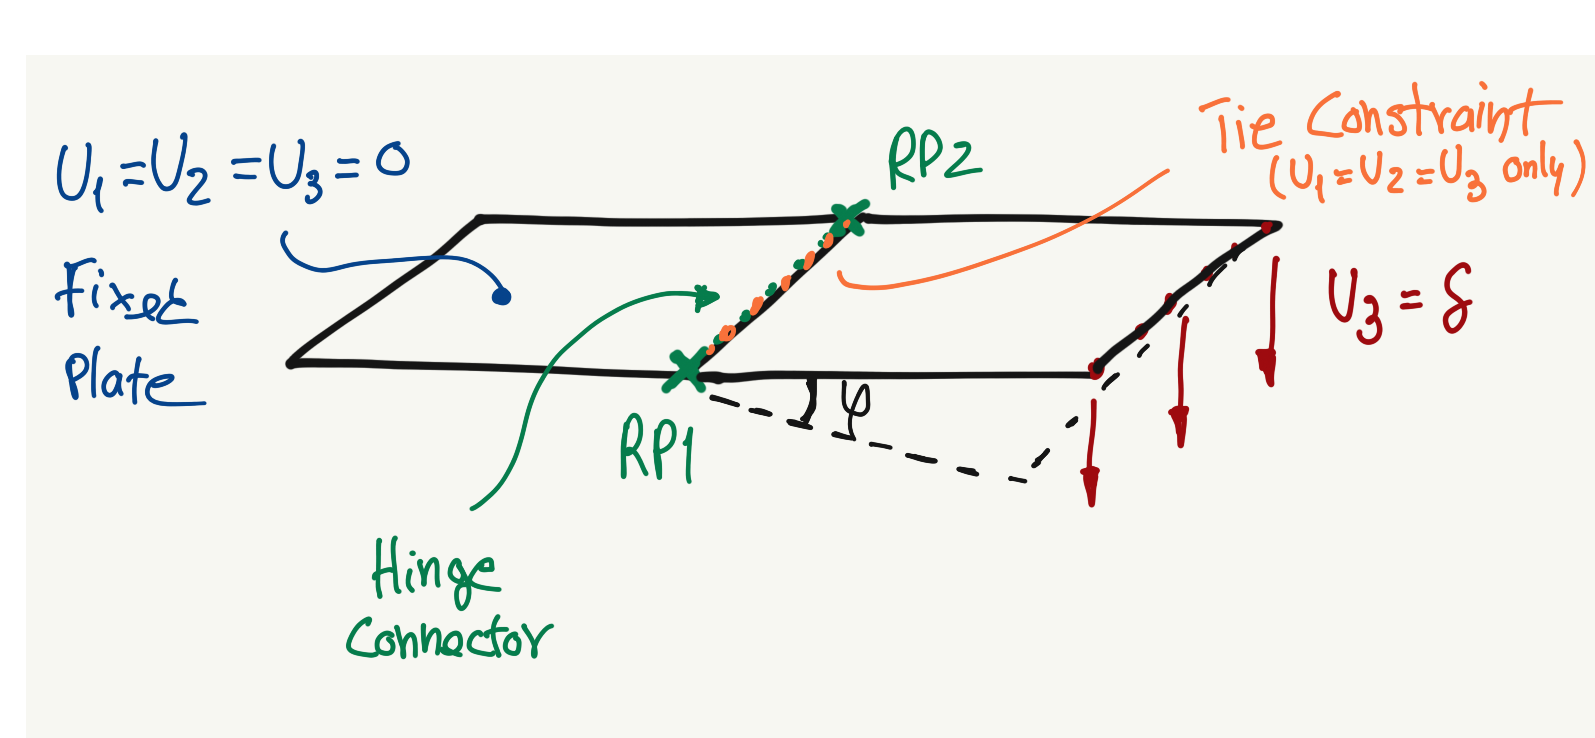 U₁ = U₂ = U₃ = 0
Fixed
Plate
RP2
Tie Constraint
(U₁ = U₂ = U₃ only)
U₃ = δ
φ
RP1
Hinge
Connector